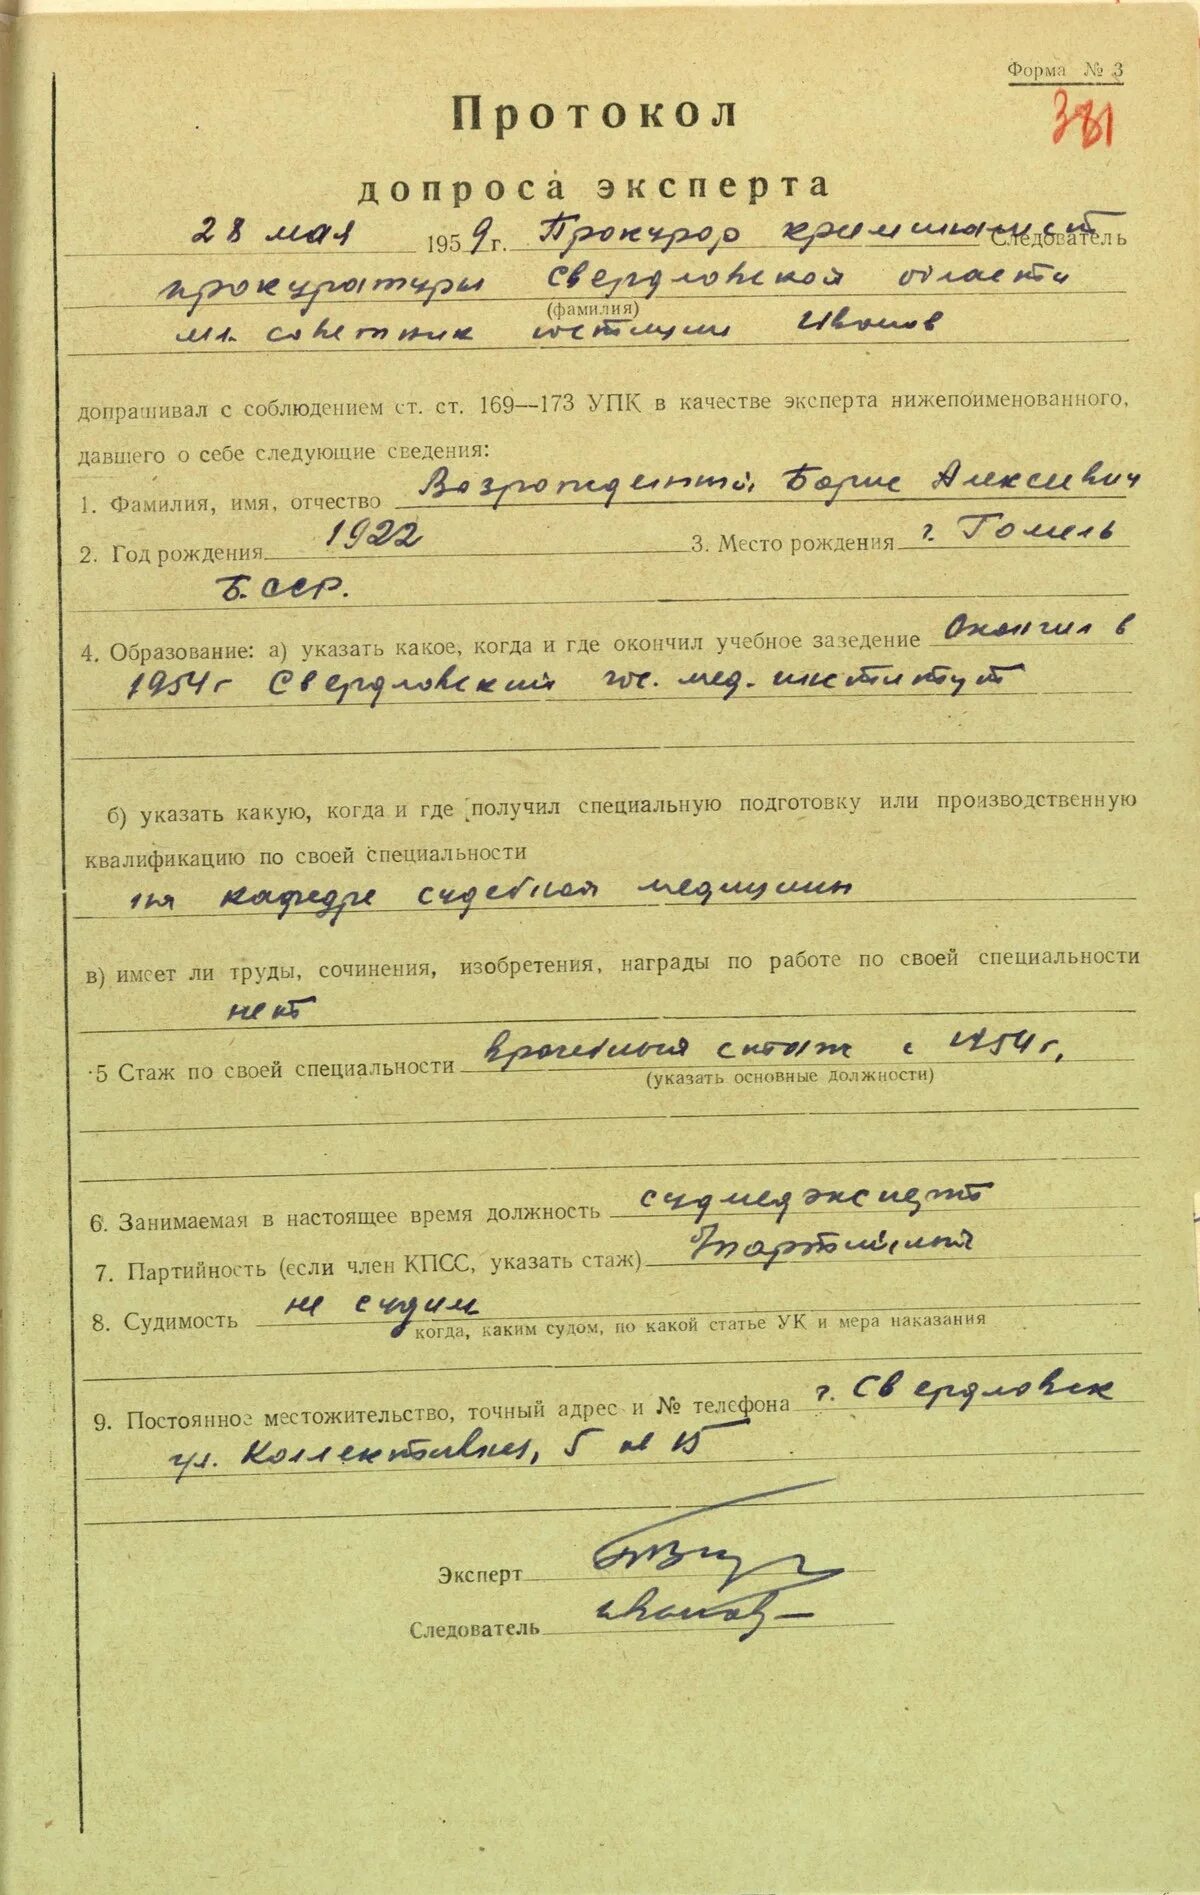 Форма № 3
381
Протокол
допроса эксперта
28 мая 1959 г. Прокурор криминалист Следователь
прокуратуры Свердловской области
(фамилия)
мл. советник юстиции Иванов
допрашивал с соблюдением ст. ст. 169—173 УПК в качестве эксперта нижепоименованного,
давшего о себе следующие сведения:
1. Фамилия, имя, отчество Возрожденный Борис Алексеевич
2. Год рождения 1922 3. Место рождения г. Гомель
Б.ССР.
4. Образование: а) указать какое, когда и где окончил учебное заведение Окончил в
1954 г Свердловский гос. мед. институт
б) указать какую, когда и где получил специальную подготовку или производственную
квалификацию по своей специальности
на кафедре судебной медицины
в) имеет ли труды, сочинения, изобретения, награды по работе по своей специальности
нет
5 Стаж по своей специальности врачебный стаж с 1954 г.
(указать основные должности)
6. Занимаемая в настоящее время должность судмедэксперт
7. Партийность (если член КПСС, указать стаж)
8. Судимость не судим
когда, каким судом, по какой статье УК и мера наказания
9. Постоянное местожительство, точный адрес и № телефона г. Свердловск
ул. Коллективная, 5 15
Эксперт
Следователь Иванов